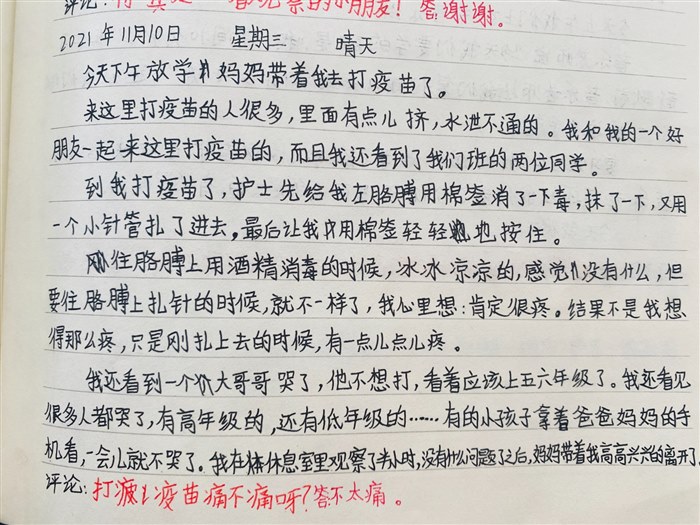 评论：有 真是一 察的小朋友！答：谢谢。
2021年11月10日 星期三 晴天
今天下午放学，妈妈带着我去打疫苗了。
来这里打疫苗的人很多，里面有点儿挤，水泄不通的。我和我的一个好
朋友一起来这里打疫苗的，而且我还看到了我们班的两位同学。
到我打疫苗了，护士先给我左胳膊用棉签消了一下毒，抹了一下，又用
一个小针管扎了进去，最后让我用棉签轻轻地按住。
刚往胳膊上用酒精消毒的时候，冰冰凉凉的，感觉没有什么，但
要往胳膊上扎针的时候，就不一样了，我心里想：肯定很疼。结果不是我想
得那么疼，只是刚扎上去的时候，有一点儿点儿疼。
我还看到一个大哥哥哭了，他不想打，看着应该上五六年级了。我还看见
很多人都哭了，有高年级的，还有低年级的……有的小孩子拿着爸爸妈妈的手
机看，一会儿就不哭了。我在休息室里观察了半小时，没有什么问题了之后，妈妈带着我高高兴兴的离开了
评论：打疫苗痛不痛呀？答：不太痛。